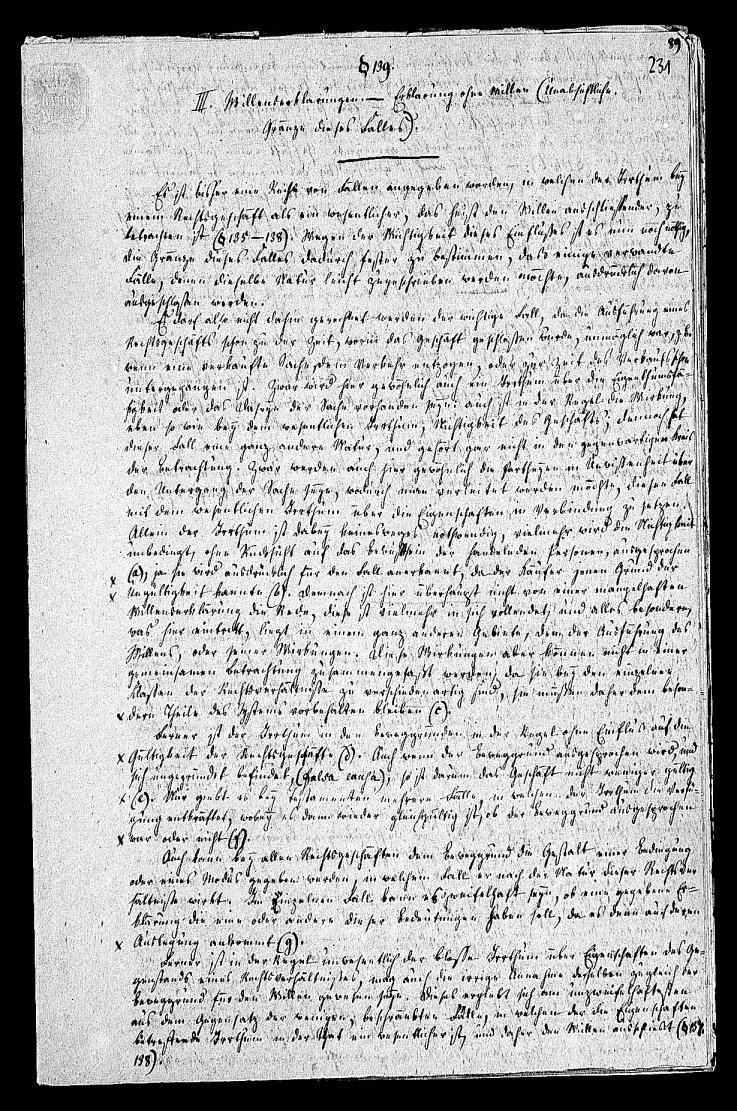 89
231
§ 139.
III. Willenserklärungen. — Erklärung ohne Willen (Unabsichtliche.
Gränze dieses Falles).
Es ist bisher eine Reihe von Fällen angegeben worden, in welchen der Irrthum bey
einem Rechtsgeschäft als ein wesentlicher, das heißt den Willen ausschließender, zu
betrachten ist (§ 135—138). Wegen der Wichtigkeit dieses Einflusses ist es nun noch nöthig,
die Gränze dieses Falles dadurch fester zu bestimmen, daß einige verwandte
Fälle, denen dieselbe Natur leicht zugeschrieben werden möchte, ausdrücklich davon
ausgeschlossen werden.
Es darf also nicht dahin gerechnet werden der wichtige Fall, da die Ausführung eines
Rechtsgeschäfts schon zu der Zeit, worin das Geschäft geschlossen wurde, unmöglich war, z. B.
wenn eine verkaufte Sache dem Verkehr entzogen, oder zur Zeit des Verkaufs schon
untergegangen ist. Zwar wird hier gewöhnlich auch ein Irrthum über die Eigenthumsfä-
higkeit oder das Daseyn der Sache vorhanden seyn; auch ist in der Regel die Wirkung,
eben so wie bey dem wesentlichen Irrthum, Nichtigkeit des Geschäfts; dennoch hat
dieser Fall eine ganz andere Natur, und gehört gar nicht in den gegenwärtigen Kreis
der Betrachtung. Zwar werden auch hier gewöhnlich die Partheyen in Unwissenheit über
den Untergang der Sache seyn, wodurch man verleitet werden möchte, diesen Fall
mit dem wesentlichen Irrthum über die Eigenschaften in Verbindung zu setzen.
Allein der Irrthum ist dabey keinesweges nothwendig, vielmehr wird die Nichtigkeit
unbedingt, ohne Rücksicht auf das Bewußtseyn der handelnden Personen, ausgesprochen
x (a), ja sie wird ausdrücklich für den Fall anerkannt, da der Käufer jenen Grund der
x Ungültigkeit kannte (b). Demnach ist hier überhaupt nicht von einer mangelhaften
Willenserklärung die Rede, diese ist vielmehr in sich vollendet, und alles besondere,
was hier eintritt, liegt in einem ganz anderen Gebiete, dem der Ausführung des
Willens, oder seiner Wirkungen. Diese Wirkungen aber können nicht in einer
gemeinsamen Betrachtung zusammengefaßt werden, da sie bey den einzelnen
Klassen der Rechtsverhältnisse zu verschiedenartig sind, sie müssen daher dem beson-
x dern Theile des Systems vorbehalten bleiben (c).
Ferner ist der Irrthum in den Beweggründen in der Regel ohne Einfluß auf die
x Gültigkeit der Rechtsgeschäfte (d). Auch wenn der Beweggrund ausgesprochen wird, und
sich ungegründet befindet, (falsa causa), so ist darum das Geschäft nicht weniger gültig
x (e). Nur giebt es bey Testamenten mehrere Fälle, in welchen der Irrthum die Verfü-
gung entkräftet, wobey es dann wieder gleichgültig ist, ob der Beweggrund ausgesprochen
x war oder nicht (f).
Auch kann bey allen Rechtsgeschäften dem Beweggrund die Gestalt einer Bedingung
oder eines Modus gegeben werden, in welchem Fall er nach der Natur dieser Rechtsver
hältnisse wirkt. Im Einzelnen Fall kann es zweifelhaft seyn, ob eine gegebene Er-
klärung die eine oder andere dieser Bedeutungen haben soll, da es dann auf deren
x Auslegung ankommt (g).
Ferner ist in der Regel unwesentlich der bloße Irrthum über Eigenschaften des Ge-
genstands eines Rechtsverhältnisses, mag auch die irrige Annahme derselben zugleich der
Beweggrund für den Willen gewesen seyn. Dieses ergiebt sich am unzweifelhaftesten
aus dem Gegensatz der wenigen, beschränkten Fälle, in welchen der die Eigenschaften
betreffende Irrthum in der That ein wesentlicher ist, und daher den Willen ausschließt (§ 137.
138).